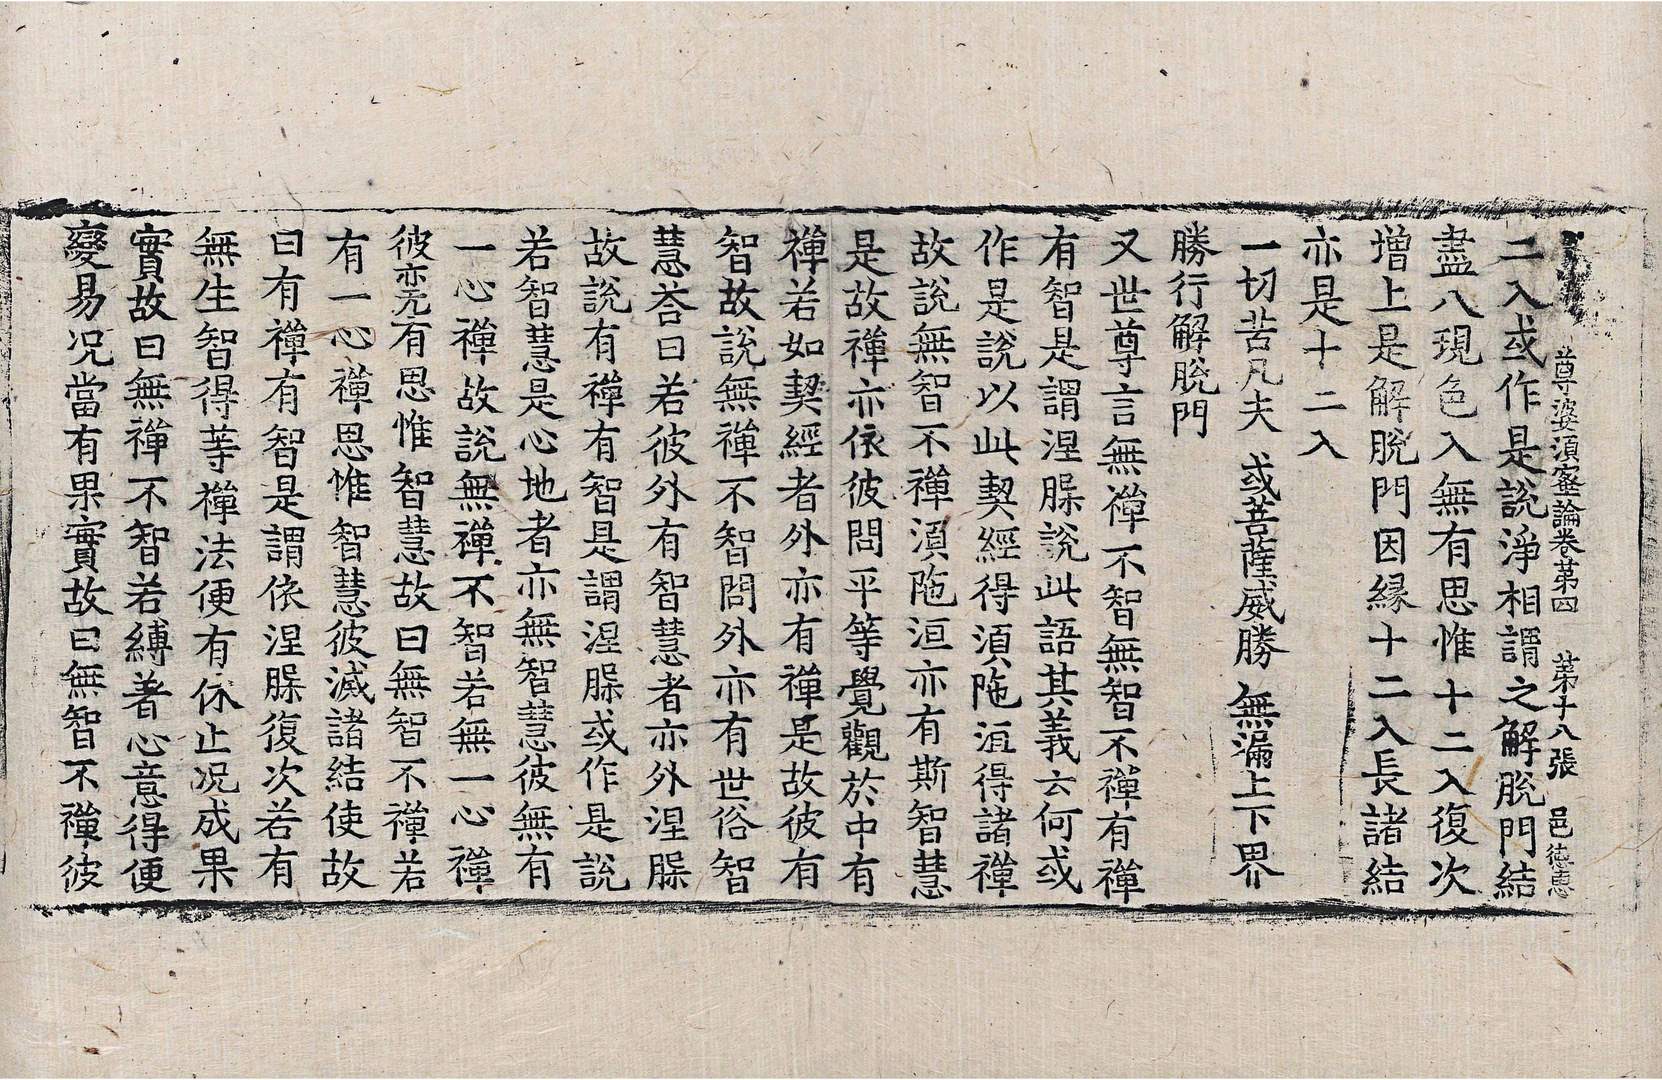 尊婆須蜜論卷第四　第十八張　邑德惠
二入或作是説淨相謂之解脫門結
盡八現色入無有思惟十二入復次
增上是解脫門因緣十二入長諸結
亦是十二入
一切苦凡夫　或菩薩威勝　無漏上下界
勝行解脫門
又世尊言無禪不智無智不禪有禪
有智是謂涅槃説此語其義云何或
作是説以此契經得須陁洹得諸禪
故説無智不禪須陁洹亦有斯智慧
是故禪亦依彼問平等覺觀於中有
禪若如契經者外亦有禪是故彼有
智故説無禪不智問外亦有世俗智
慧荅曰若彼外有智慧者亦外涅槃
故説有禪有智是謂涅槃或作是説
若智慧是心地者亦無智慧彼無有
一心禪故説無禪不智若無一心禪
彼亦无有思惟智慧故曰無智不禪若
有一心禪思惟智慧彼滅諸結使故
曰有禪有智是謂依涅槃復次若有
無生智得等禪法便有休止况成果
實故曰無禪不智若縛著心意得便
變易况當有果實故曰無智不禪彼